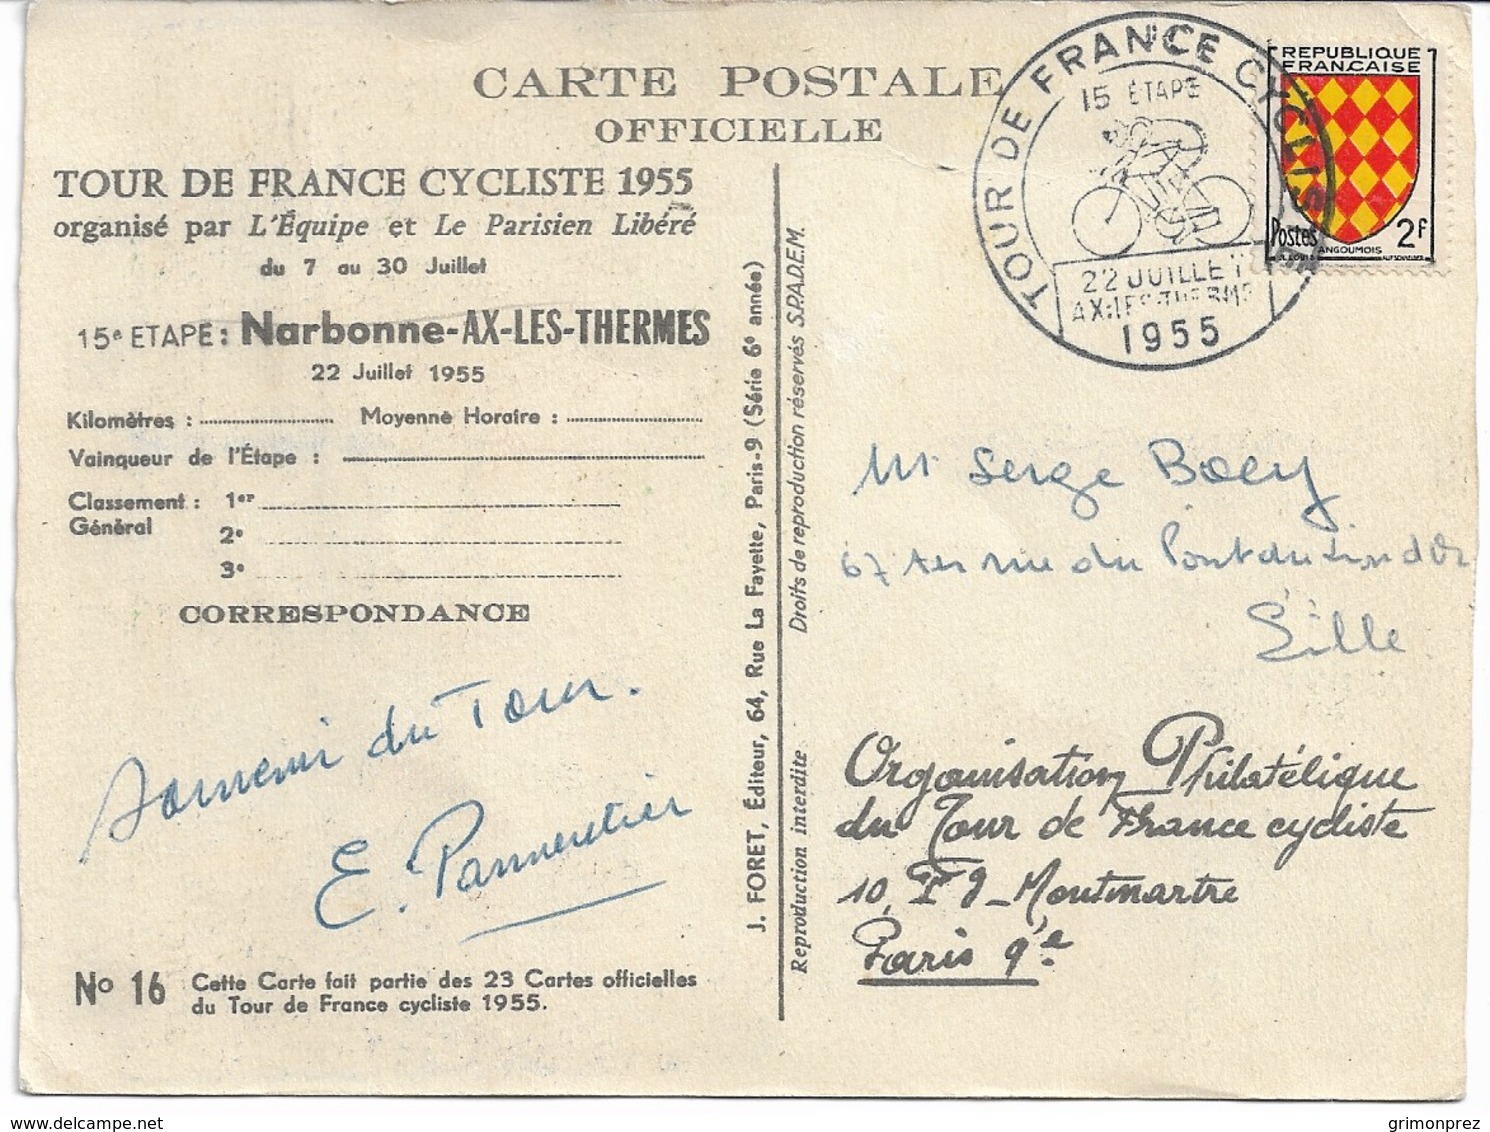 CARTE POSTALE
OFFICIELLE
TOUR DE FRANCE CYCLISTE 1955
organisé par L'Équipe et Le Parisien Libéré
du 7 au 30 Juillet
15e ETAPE : Narbonne-AX-LES-THERMES
22 Juillet 1955
Kilomètres : Moyenne Horaire :
Vainqueur de l'Étape :
Classement : 1er
Général
2e
3e
CORRESPONDANCE
Souvenir du Tour.
E. Parmentier
No 16 Cette Carte fait partie des 23 Cartes officielles
du Tour de France cycliste 1955.
J. FORET, Éditeur, 64, Rue La Fayette, Paris-9 (Série 6e année)
Reproduction interdite Droits de reproduction réservés S.P.A.D.E.M.
TOUR DE FRANCE CYCLISTE
15 ÉTAPE
22 JUILLET
AX-LES-THERMS
1955
REPUBLIQUE
FRANÇAISE
Postes 2F
ANGOUMOIS
Mr Serge Boey
67 ter rue du Pont du Lion d'Or
Lille
Organisation Philatélique
du Tour de France cycliste
10, Fg-Montmartre
Paris 9e
delcampe.net
grimonprez